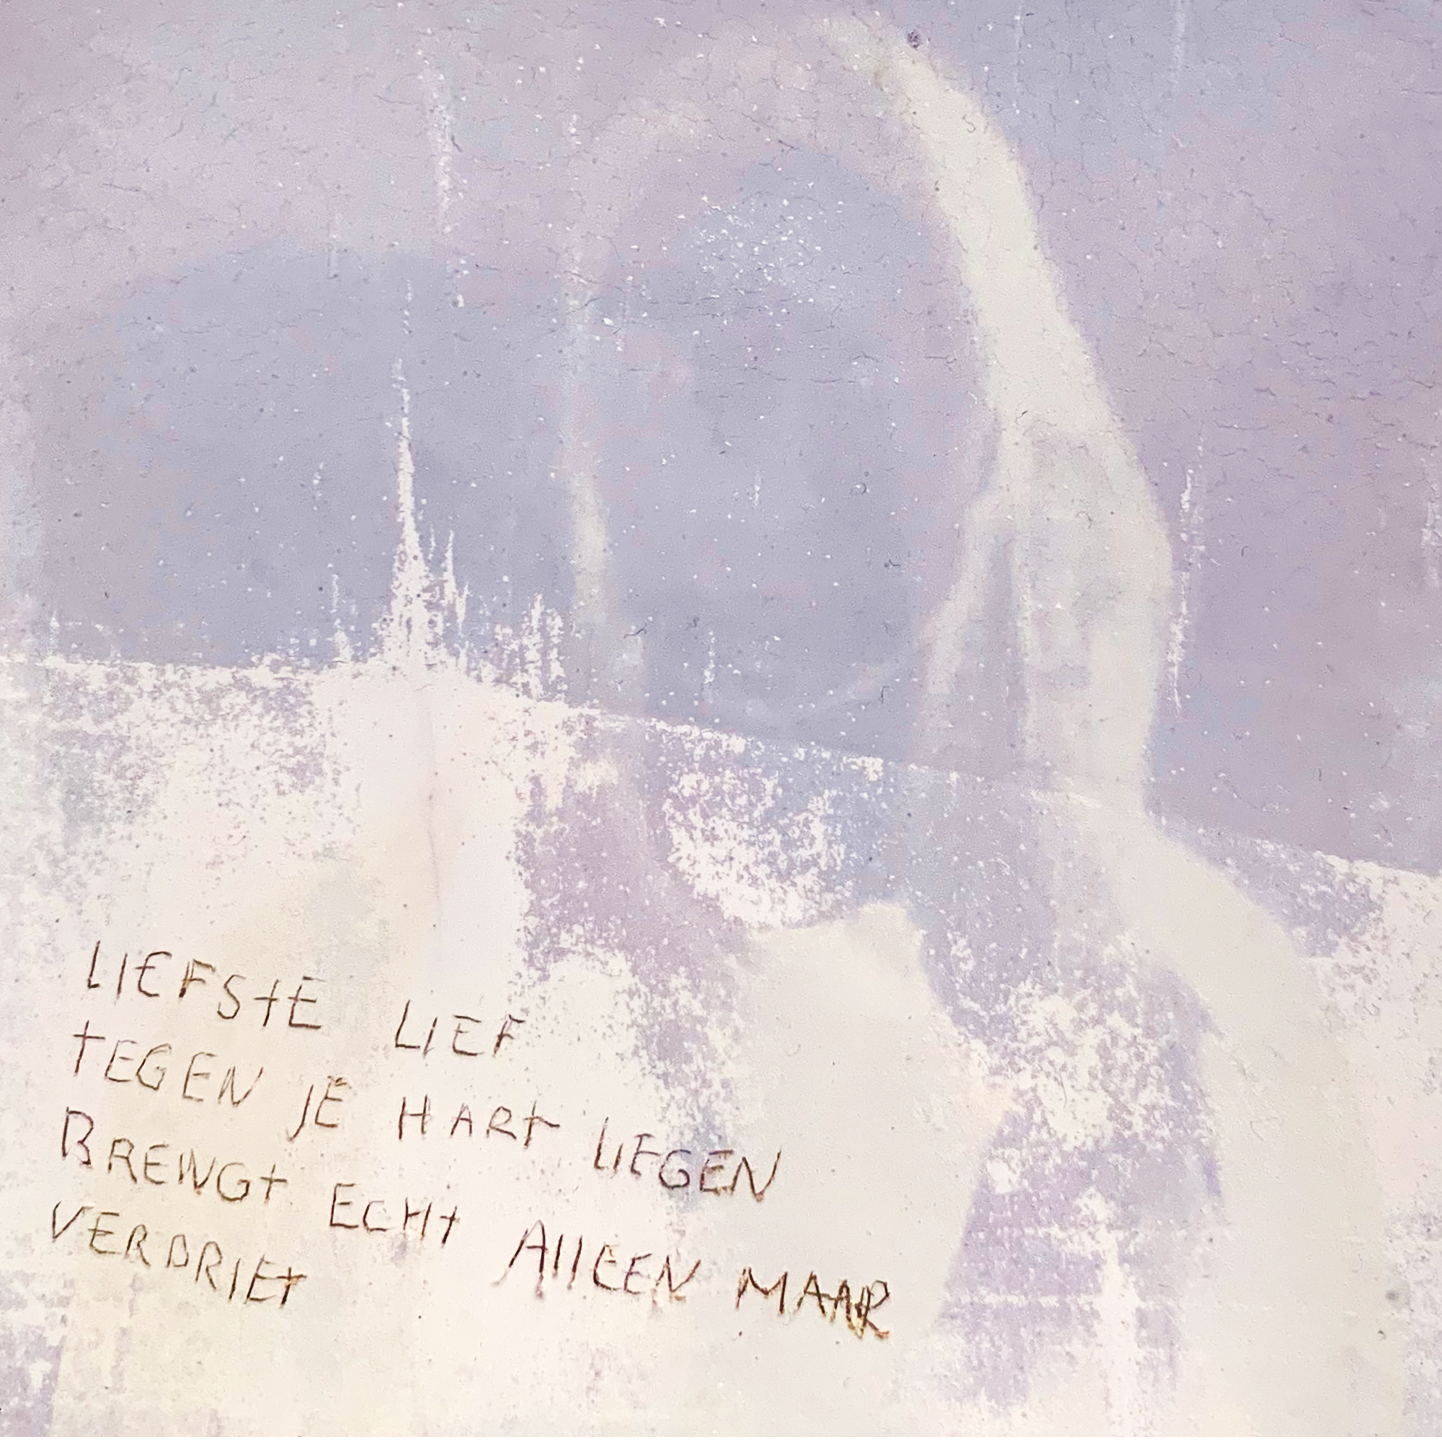 LIEFSTE LIEF
TEGEN JE HART LIEGEN
BRENGT ECHT ALLEEN MAAR
VERDRIET